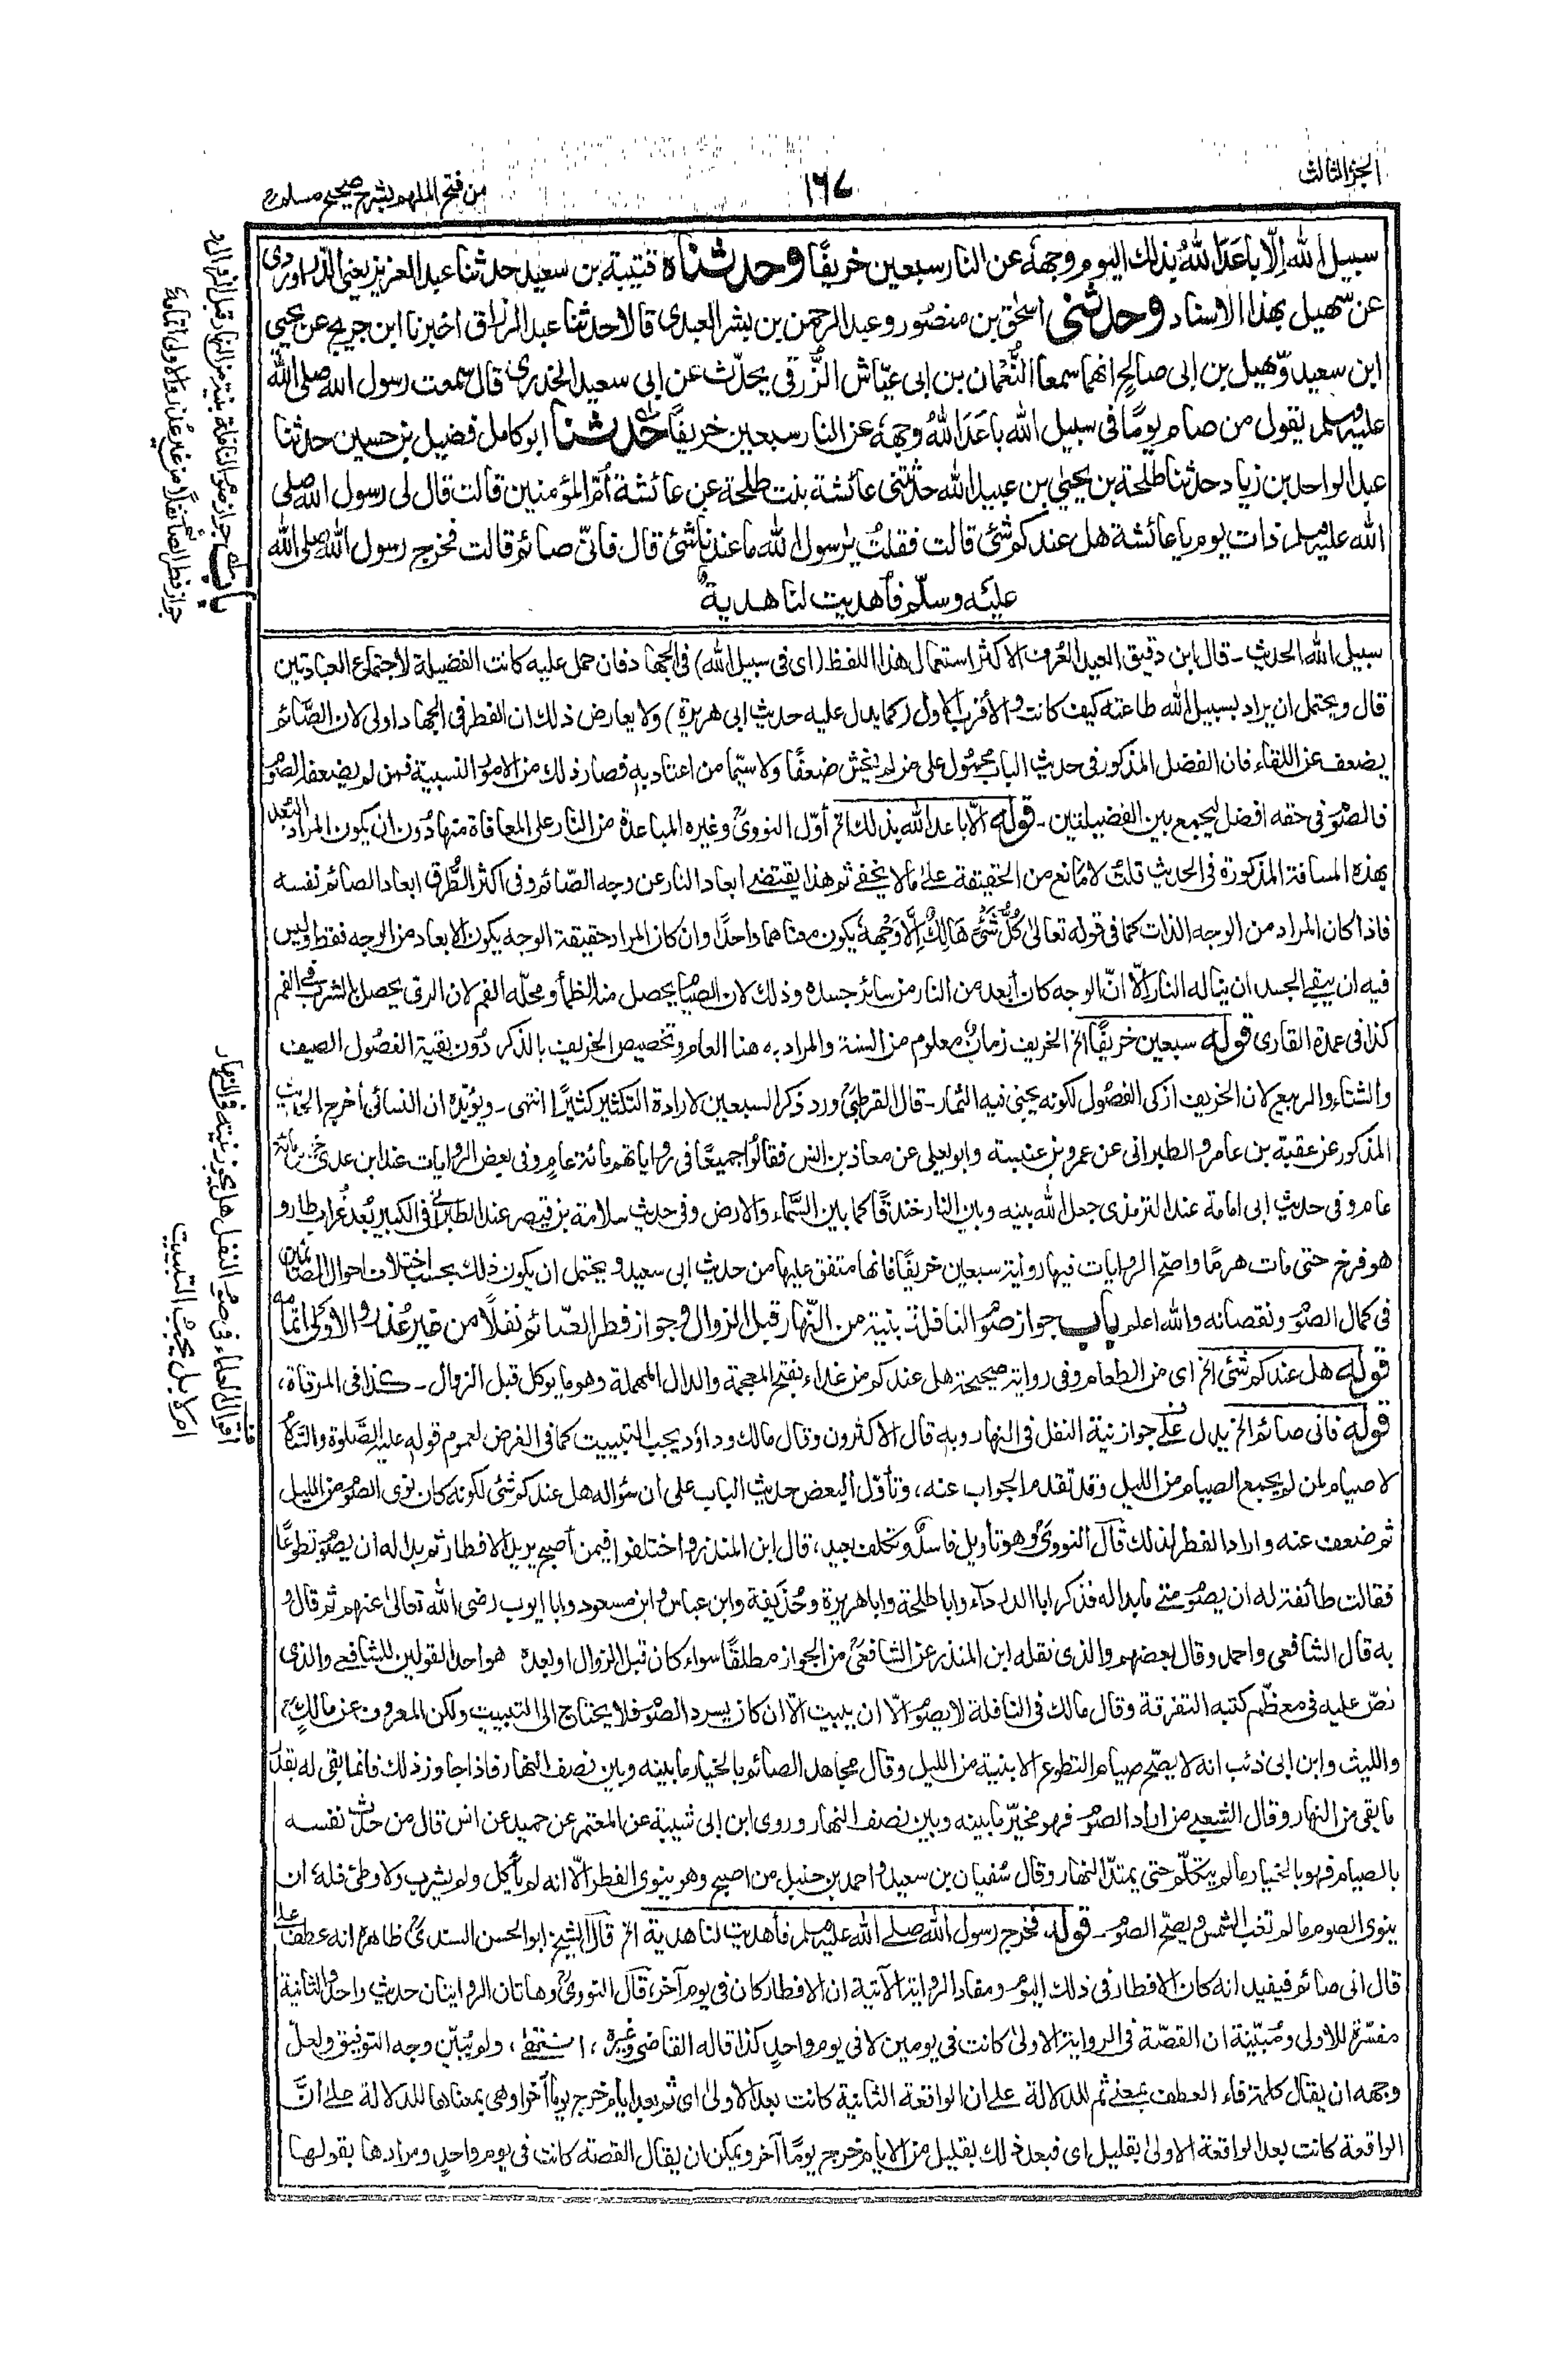 الجزء الثالث
١٦٧
من فتح الملهم بشرح صحيح مسلم
سبيل الله إلا باعَدَ اللهُ بذلك اليوم وجهَه عن النار سبعين خريفًا وحدثناه قتيبة بن سعيد حدثنا عبد العزيز يعني الدراوردى
عن سهيل بهذا الاسناد وحدثنى اسحٰق بن منصور وعبد الرحمن بن بشر العبدى قالا حدثنا عبد الرزاق اخبرنا ابن جريج عن يحيي
ابن سعيد وسهيل بن ابى صالح انهما سمعا النُّعمان بن ابى عيّاش الزُّرَقى يحدّث عن ابى سعيد الخدرى قال سمعت رسول الله صلى الله
عليه وسلم يقول من صام يومًا فى سبيل الله باعَدَ اللهُ وجهَه عن النار سبعين خريفًا حدثنا ابو كامل فضيل بن حسين حدثنا
عبد الواحد بن زياد حدثنا طلحة بن يحيٰي بن عبيد الله حدثتنى عائشة بنت طلحة عن عائشة أمّ المؤمنين قالت قال لى رسول الله صلى
الله عليه وسلم ذات يوم يا عائشة هل عندكم شئ قالت فقلتُ يا رسول الله ما عندنا شئ قال فانّى صائم قالت فخرج رسول الله صلى الله
عليه وسلّم فأهديت لنا هدية
سبيل الله الحديث ـ قال ابن دقيق العيد العُرف الاكثر استعمال هذا اللفظ (اى فى سبيل الله) فى الجهاد فان حمل عليه كانت الفضيلة لاجتماع العبادتين
قال ويحتمل ان يراد بسبيل الله طاعته كيف كانت والأقرب الاول (كما يدل عليه حديث ابى هريرة) ولا يعارض ذلك ان الفطر فى الجهاد اولى لان الصّائم
يضعف عن اللقاء فان الفضل المذكور فى حديث الباب محمول على من لم يخش ضعفًا ولا سيّما من اعتاد به فصار ذلك من الامور النسبية فمن لم يضعفه الصوم
فالصوم فى حقه افضل ليجمع بين الفضيلتين ـ قوله الّا باعد الله بذلك الخ أوّل النووى وغيره المباعدة من النار على المعافاة منها دُون ان يكون المراد البُعد
بهذه المسافة المذكورة فى الحديث قلتُ لا مانع من الحقيقة على ما لا يخفى ثم هذا يقتضى ابعاد النار عن وجه الصّائم وفى اكثر الطُّرق ابعاد الصائم نفسه
فاذا كان المراد من الوجه الذات كما فى قوله تعالى كُلُّ شَئٍ هَالِكٌ اِلَّا وَجْهَهٗ يكون معناهما واحدًا وان كان المراد حقيقة الوجه يكون الابعاد من الوجه فقط وليس
فيه ان يبقى الجسد ان يناله النار الّا انّ الوجه كان أبعد من النار من سائر جسده وذلك لان الصيام يحصل منه الظمأ ومحلّه الفم لان الرى يحصل بالشرب فى الفم
كذا فى عمدة القارى قوله سبعين خريفًا الخ الخريف زمانٌ معلوم من السنة والمراد به هنا العام وتخصيص الخريف بالذكر دُون بقية الفصُول الصيف
والشتاء والربيع لان الخريف ازكى الفصُول لكونه يجنى فيه الثمار ـ قال القرطبى ورد ذكر السبعين لارادة التكثير كثيرًا انتهى ـ ويؤيّده ان النسائى أخرج الحديث
المذكور عن عقبة بن عامر والطبرانى عن عمرو بن عنبسة وابو يعلى عن معاذ بن انس فقالُوا جميعًا فى رواياتهم مائة عام وفى بعض الروايات عند ابن عدى
عام وفى حديث ابى امامة عند الترمذى جعل الله بينه وبين النار خندقًا كما بين السَّماء والارض وفى حديث سلامة بن قيصر عند الطبرانى فى الكبير بُعْدَ غُراب طار و
هو فرخ حتى مات هرمًا واصح الروايات فيها رواية سبعين خريفًا فانها متفق عليها من حديث ابى سعيد ويحتمل ان يكون ذلك بحسب اختلاف احوال الصائمين
فى كمال الصوم ونقصانه والله اعلم باب جواز صوم النافلة بنية من النّهار قبل الزوال وجواز فطر الصّائم نفلًا من غير عُذر والاولى اتمامه
قوله هل عندكم شئى الخ اى من الطعام وفى رواية صحيحة هل عندكم من غداء بفتح المعجمة والدال المهملة وهو ما يوكل قبل الزوال ـ كذا فى المرقاة،
قوله فانى صائم الخ يدل على جواز نية النفل فى النهار وبه قال الاكثرون وقال مالك وداؤد يجب التبييت كما فى الفرض لعموم قوله عليه الصّلوة والسّلام
لا صيام لمن لم يجمع الصيام من الليل وقد تقدم الجواب عنه، وتأوّل البعض حديث الباب على ان سؤاله هل عندكم شئى لكونه كان نوى الصوم من الليل
ثم ضعف عنه واراد الفطر لذلك قال النووى وهو تأويل فاسد وتكلف بعيد، قال ابن المنذر واختلفوا فيمن أصبح يريد الافطار ثم بدا له ان يصوم تطوعًا
فقالت طائفة له ان يصوم متى ما بدا له فذكر ابا الدرداء وابا طلحة وابا هريرة وحُذيفة وابن عباس وابن مسعود وابا ايوب رضى الله تعالى عنهم ثم قال و
به قال الشافعى واحمد وقال بعضهم والذى نقله ابن المنذر عن الشافعى من الجواز مطلقًا سواء كان قبل الزوال او بعده هو احد القولين للشافعى والذى
نصّ عليه فى معظم كتبه التفرقة وقال مالك فى النافلة لا يصوم الّا ان يبيت الّا ان كان يسرد الصوم فلا يحتاج الى التبييت ولكن المعروف عن مالكٍ،
والليث وابن ابى ذئب انه لا يصحّ صيام التطوع الا بنية من الليل وقال مجاهد الصائم بالخيار ما بينه وبين نصف النهار فاذا جاوز ذلك فانما بقى له بقدر
ما بقى من النهار وقال الشعبى من اراد الصوم فهو مخيّر ما بينه وبين نصف النهار وروى ابن ابى شيبة عن المعتمر عن حميد عن انس قال من حدّث نفسه
بالصيام فهو بالخيار ما لم يتكلّم حتى يمتدّ النهار وقال سُفيان بن سعيد واحمد بن حنبل من اصبح وهو ينوى الفطر الّا انه لم يأكل ولم يشرب ولا وطئ فله ان
ينوى الصوم ما لم تغب الشمس ويصحّ الصوم ـ قوله فخرج رسول الله صلى الله عليه وسلم فأهديت لنا هدية الخ قال الشيخ ابو الحسن السندى ظاهره انه عطف على
قال انى صائم فيفيد انه كان الافطار فى ذلك اليوم ومفاد الرواية الآتية ان الافطار كان فى يوم آخر، قال النووى وهاتان الروايتان حديث واحد والثانية
مفسّرة للاولى ومُبيّنة ان القصّة فى الرواية الاولىٰ كانت فى يومين لا فى يوم واحدٍ كذا قاله القاضى وغيره، انتهٰى، ولم يُبيّن وجه التوفيق ولعلّ
وجهه ان يقال كلمة فاء العطف بمعنى ثم للدلالة على ان الواقعة الثانية كانت بعد الاولىٰ اى ثم بعد ايام خرج يومًا آخر او هى بمعناها للدلالة على انَّ
الواقعة كانت بعد الواقعة الاولىٰ بقليل اى فبعد ذلك بقليل من الايام خرج يومًا آخر ويمكن ان يقال القصته كانت فى يوم واحدٍ ومرادها بقولها
باب جواز صوم النافلة بنية من النهار قبل الزوال و
جواز فطر الصائم نفلًا من غير عُذر والاولى اتمامه
اقوال العلماء فى صوم النفل هل يجوز بنيته فى النهار
ام لا بل يجب التبييت